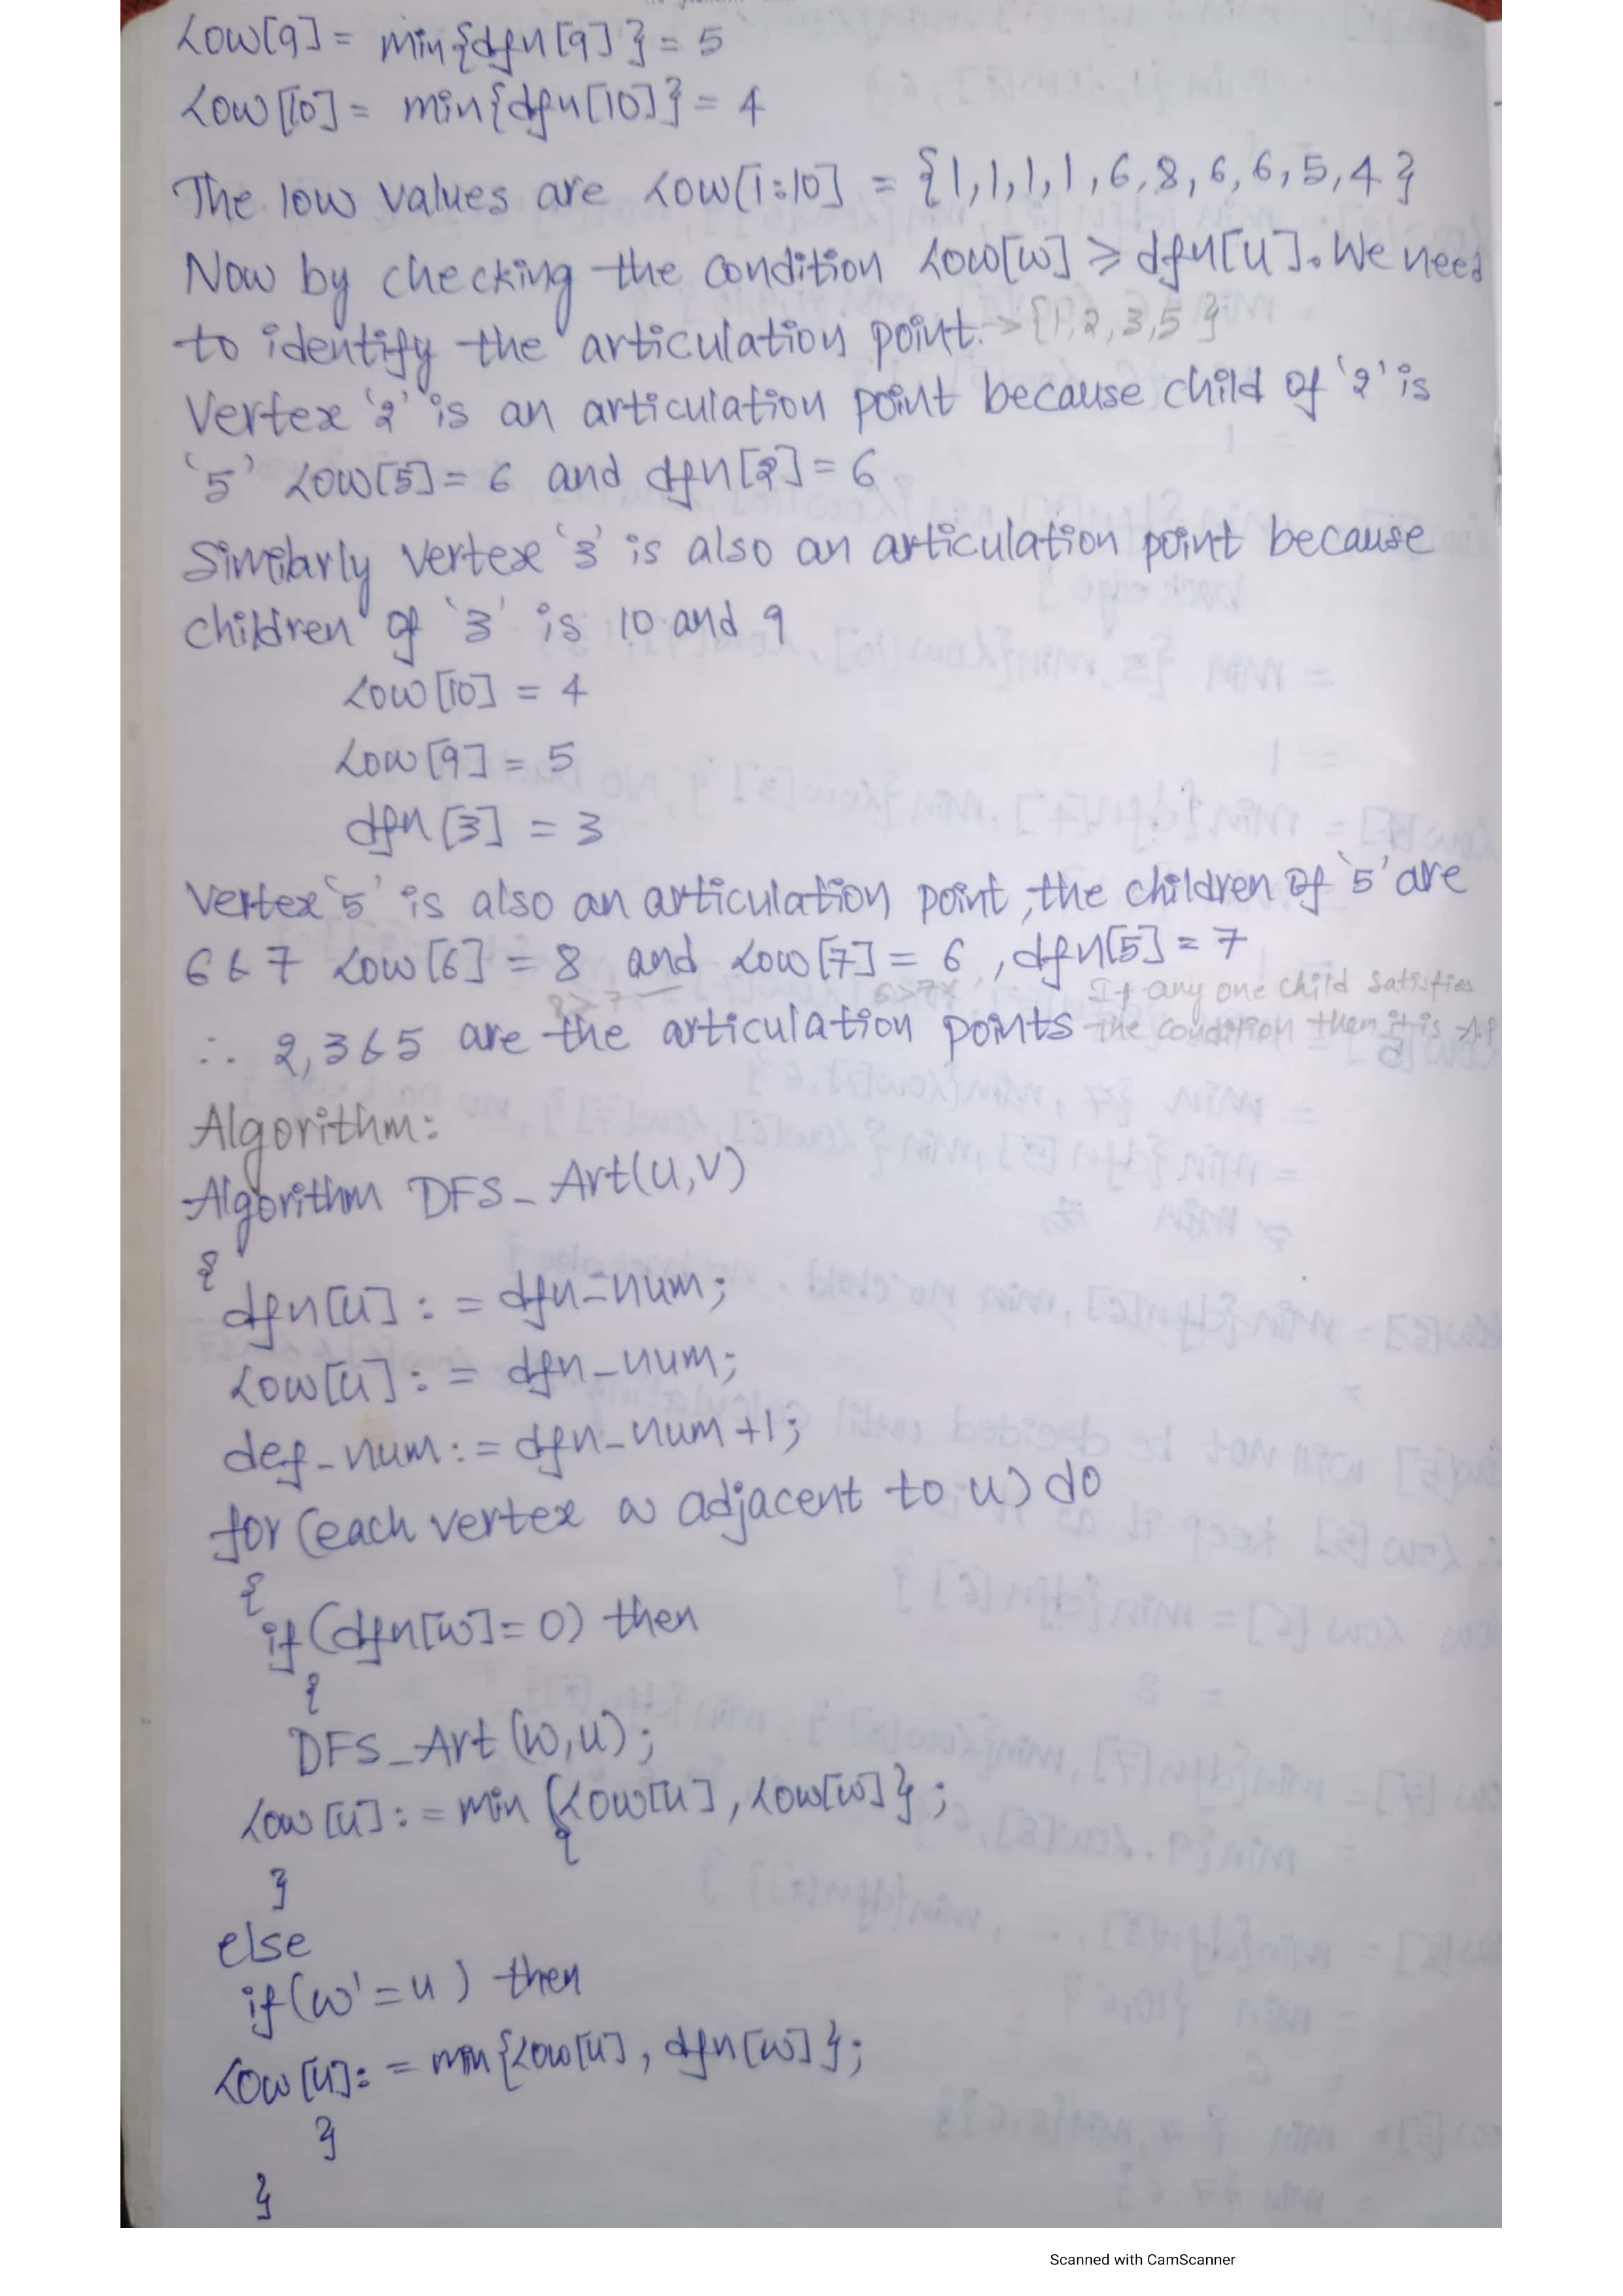 Low[9] = min{dfn[9]} = 5
Low[10] = min{dfn[10]} = 4
The low values are Low[1:10] = {1,1,1,1,6,8,6,6,5,4}
Now by checking the condition Low[w] ≥ dfn[u]. We need
to identify the articulation point. → {1,2,3,5}
Vertex '2' is an articulation point because child of '2' is
'5' Low[5] = 6 and dfn[2] = 6
Similarly vertex '3' is also an articulation point because
children of '3' is 10 and 9
Low[10] = 4
Low[9] = 5
dfn[3] = 3
Vertex '5' is also an articulation point, the children of '5' are
6 & 7 Low[6] = 8 and Low[7] = 6, dfn[5] = 7
8≥7 6≥7× If any one child satisfies
∴ 2,3&5 are the articulation points the condition then it is A.P
Algorithm:
Algorithm DFS_Art(u,v)
{
dfn[u] := dfn_num;
Low[u] := dfn_num;
def_num := dfn_num+1;
for (each vertex w adjacent to u) do
{
if(dfn[w]=0) then
{
DFS_Art(w,u);
Low[u] := min{Low[u], Low[w]};
}
else
if(w'=u) then
Low[u] := min{Low[u], dfn[w]};
}
}
Scanned with CamScanner